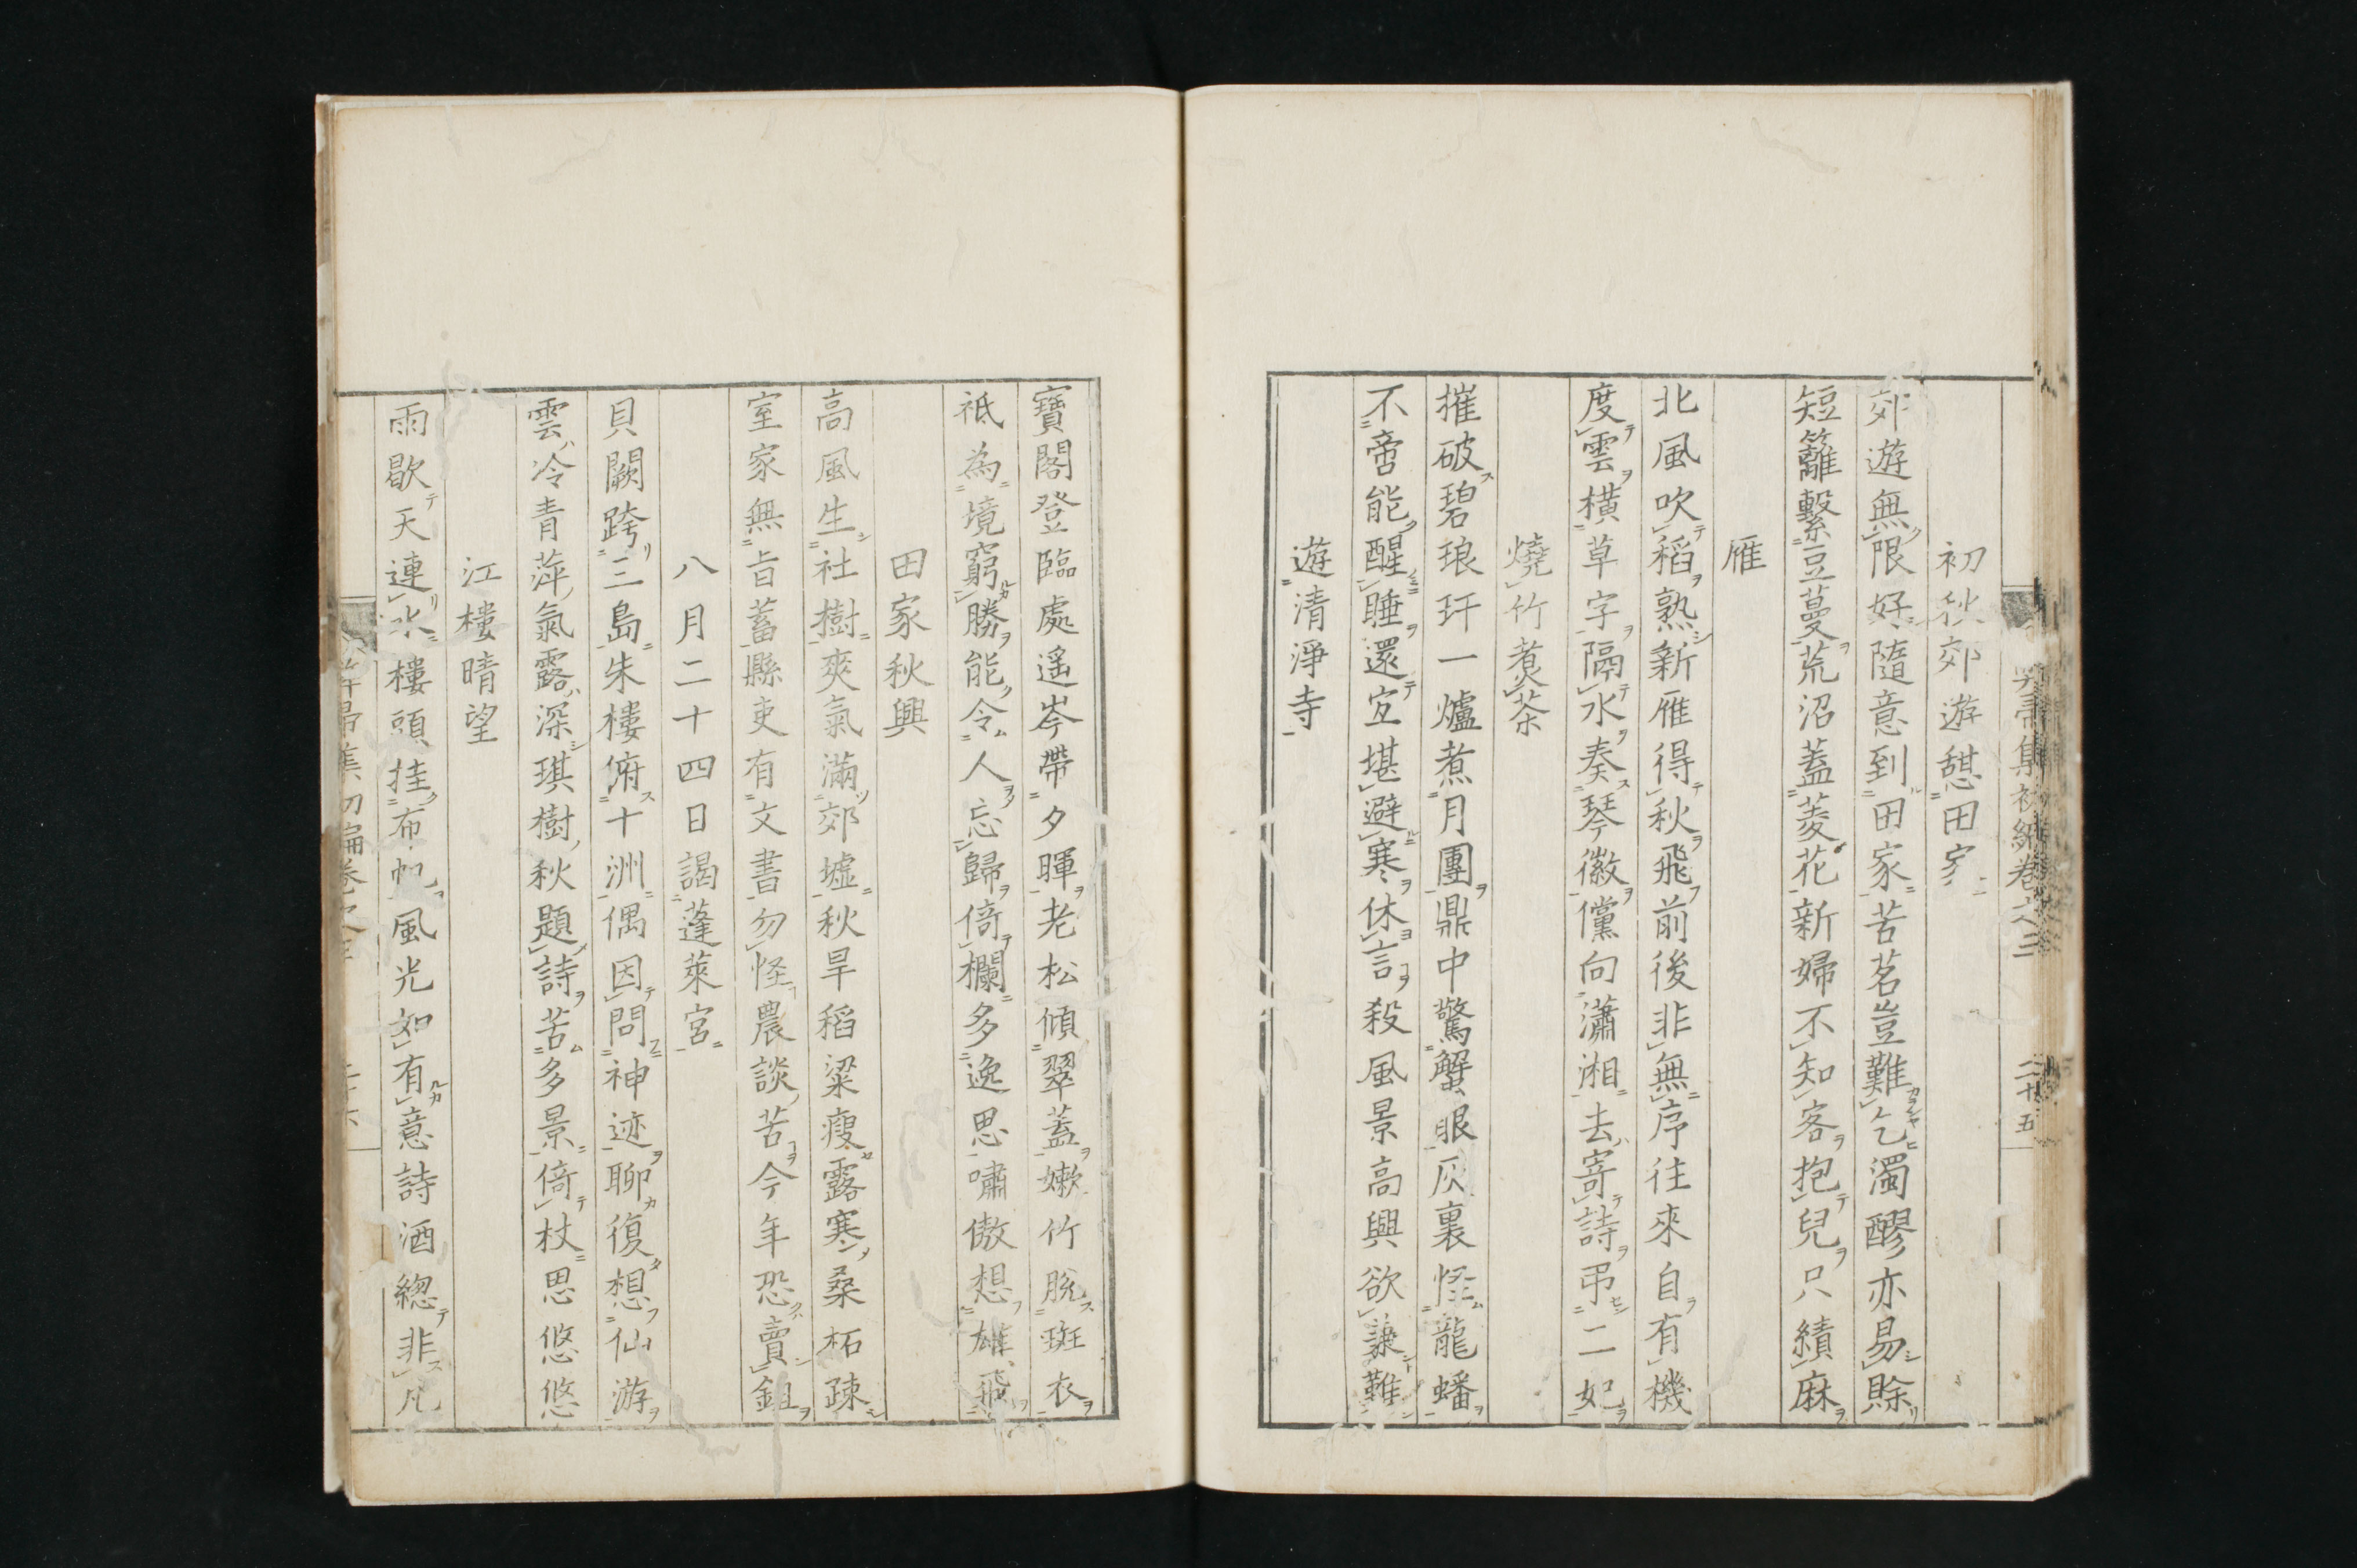 初秋郊遊憇田家
郊遊無限好隨意到田家苦茗豈難乞濁醪亦易賖
短籬繫豆蔓荒沼蓋菱花新婦不知客抱兒只績麻
雁
北風吹稻熟新雁得秋飛前後非無序往來自有機
度雲橫草字隔水奏琴徽儻向瀟湘去寄詩弔二妃
燒竹煮茶
摧破碧琅玕一爐煮月團鼎中驚蟹眼灰裏怪龍蟠
不啻能醒睡還宜堪避寒休言殺風景高興欲兼難
遊清淨寺
寶閣登臨處遥岑帶夕暉老松傾翠蓋嫰竹脫斑衣
祗為境窮勝能令人忘歸倚欄多逸思嘯傲想雄飛
田家秋興
高風生社樹爽氣滿郊墟秋旱稻粱瘦露寒桑柘疎
室家無旨蓄縣吏有文書勿怪農談苦今年恐賣鉏
八月二十四日謁蓬萊宮
貝闕跨三島朱樓俯十洲偶因問神迹聊復想仙游
雲冷青萍氣露深琪樹秋題詩苦多景倚杖思悠悠
江樓晴望
雨歇天連水樓頭挂布帆風光如有意詩酒總非凡